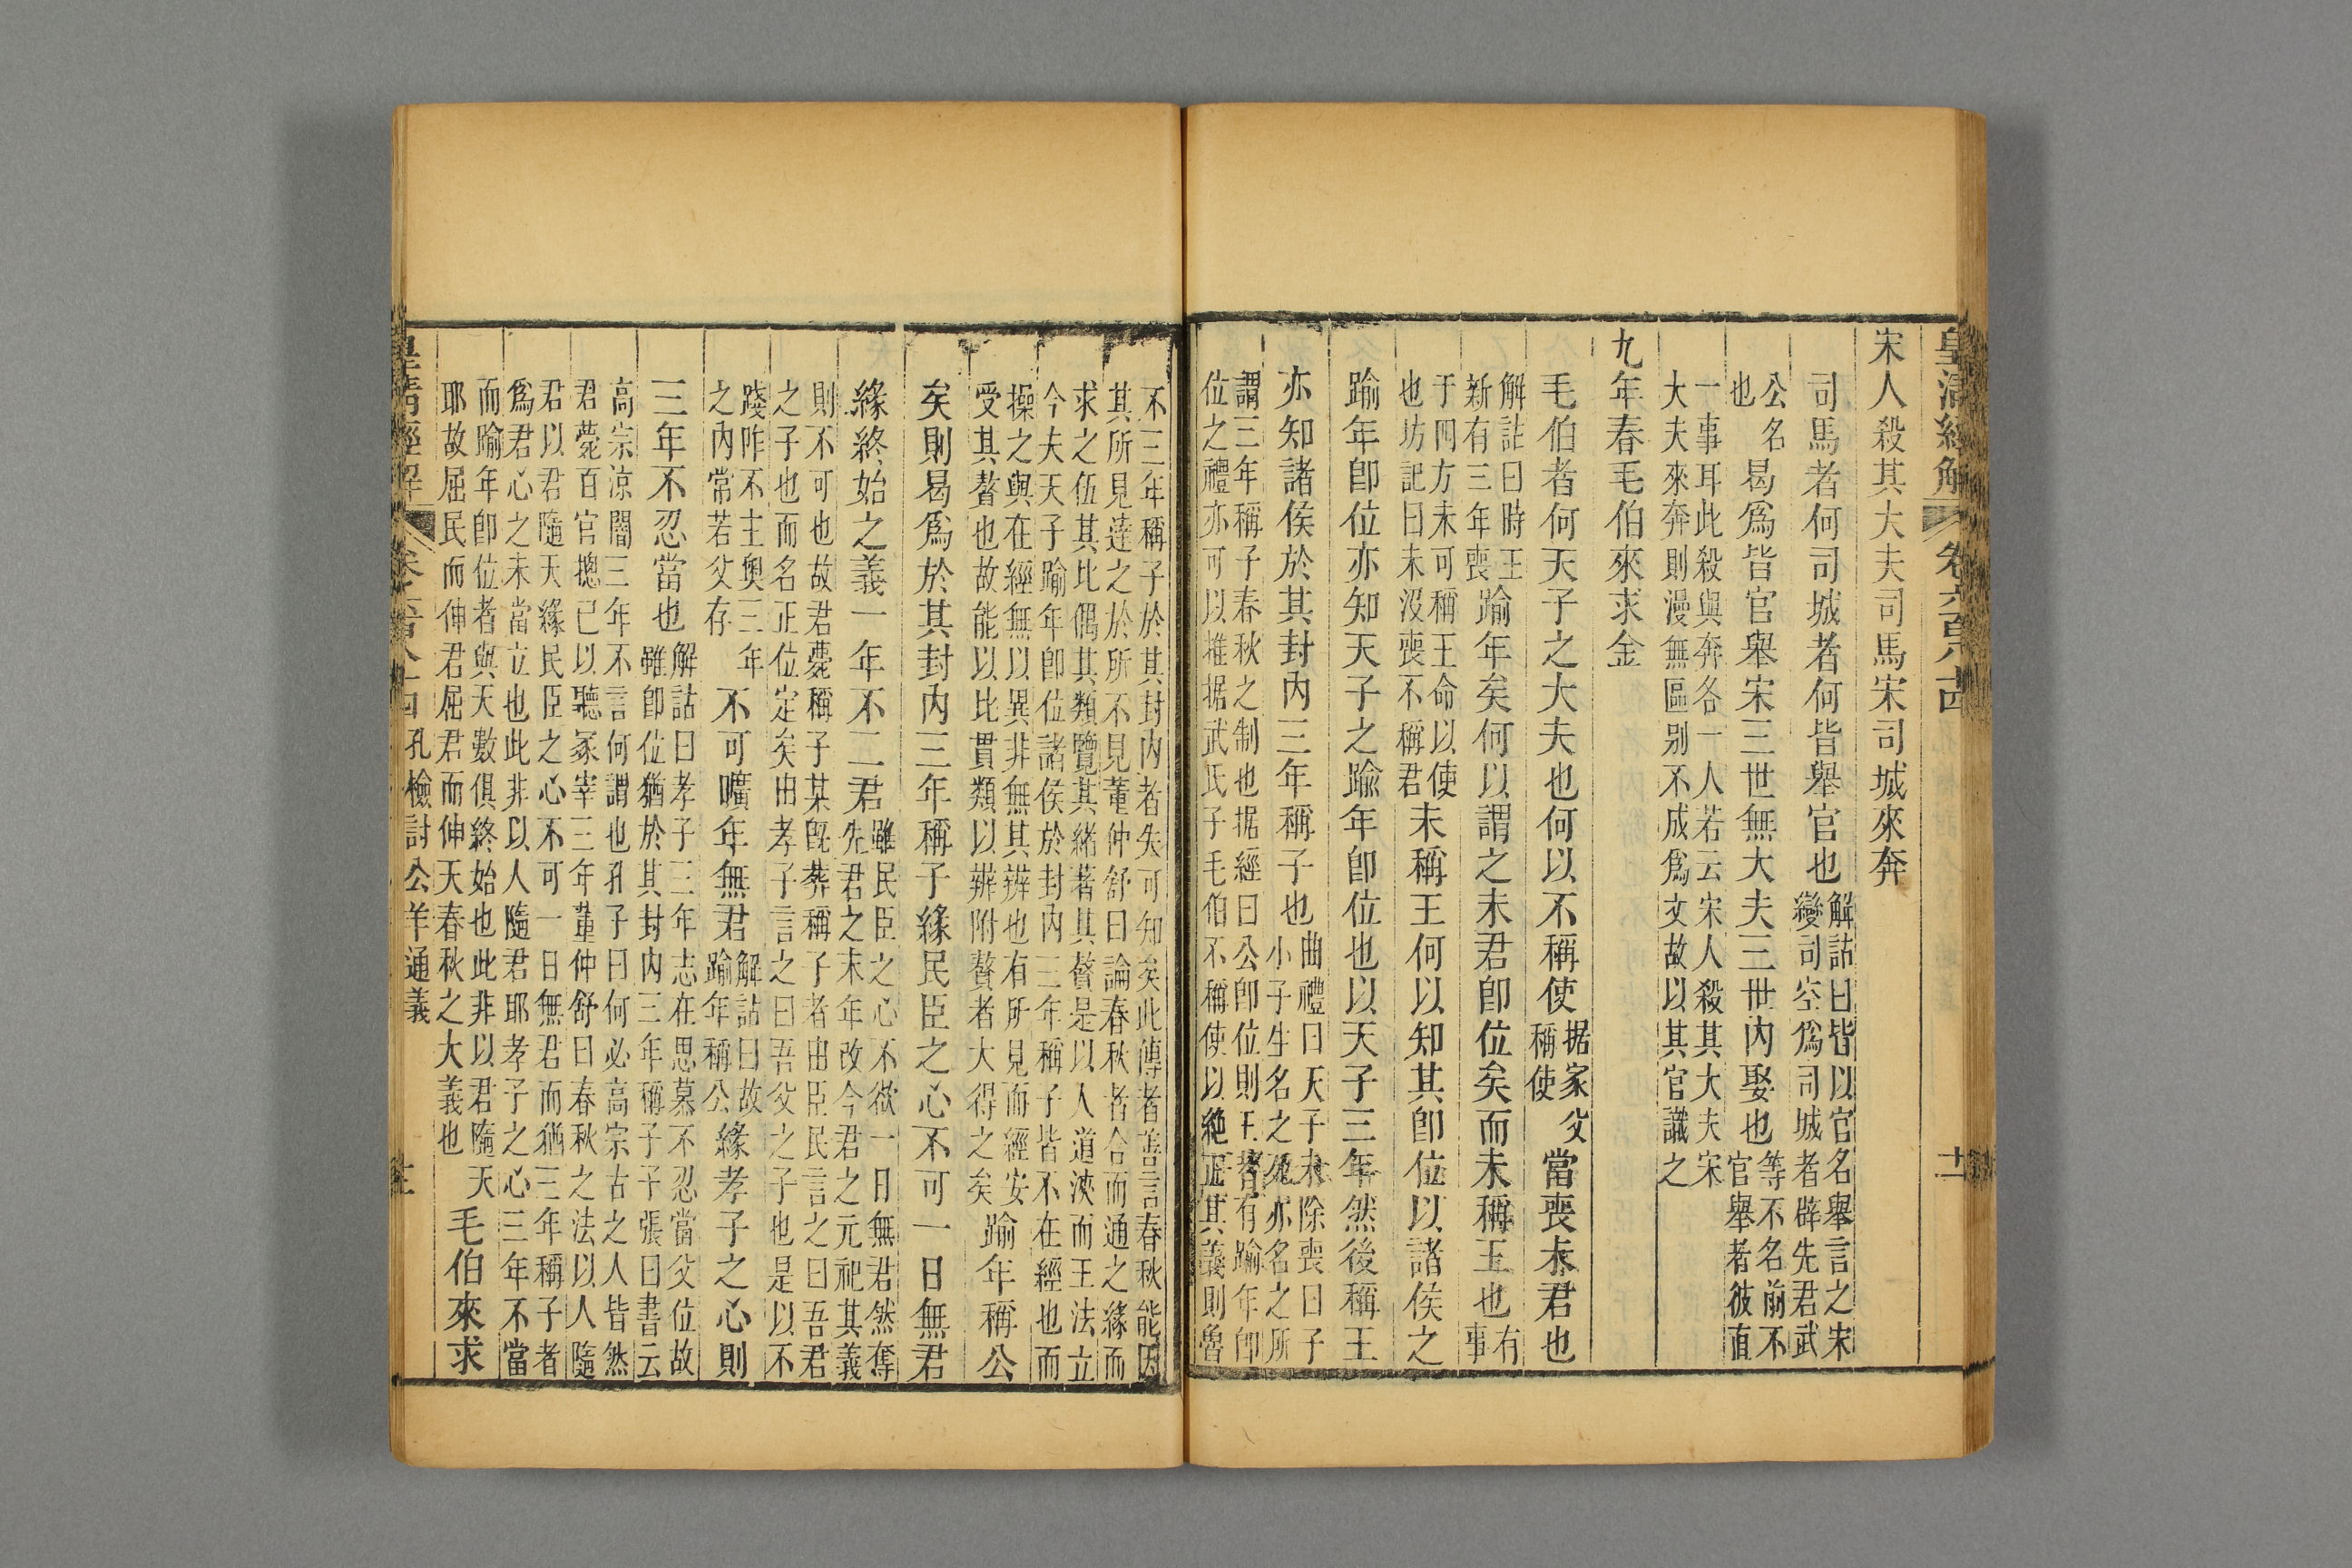 皇清經解 卷六百八十四 十二
宋人殺其大夫司馬宋司城來奔
司馬者何司城者何皆舉官也
解詁曰皆以官名舉言之宋
變司空爲司城者辟先君武
公名
也
曷爲皆官舉宋三世無大夫三世內娶也
等不名前不
官舉者彼直
一事耳此殺與奔各一人若云宋人殺其大夫宋
大夫來奔則漫無區别不成爲文故以其官識之
九年春毛伯來求金
毛伯者何天子之大夫也何以不稱使
据家父
稱使
當喪未君也
解詁曰時王
新有三年喪
踰年矣何以謂之未君卽位矣而未稱王也
有
事
于四方未可稱王命以使
也坊記曰未沒喪不稱君
未稱王何以知其卽位以諸侯之
踰年卽位亦知天子之踰年卽位也以天子三年然後稱王
亦知諸侯於其封內三年稱子也
曲禮曰天子未除喪曰子
小子生名之死亦名之所
謂三年稱子春秋之制也据經曰公卽位則王者有踰年卽
位之禮亦可以推据武氏子毛伯不稱使以絶正其義則魯
不三年稱子於其封內者失可知矣此傳者善言春秋能因
其所見達之於所不見董仲舒曰論春秋者合而通之緣而
求之伍其比偶其類覽其緒著其贅是以人道浹而王法立
今夫天子踰年卽位諸侯於封內三年稱子皆不在經也而
操之與在經無以異非無其辨也有所見而經安
受其贅也故能以比貫類以辨附贅者大得之矣
踰年稱公
矣則曷爲於其封內三年稱子緣民臣之心不可一日無君
緣終始之義一年不二君
雖民臣之心不欲一日無君然奪
先君之末年改今君之元祀其義
則不可也故君薨稱子某旣葬稱子者由臣民言之曰吾君
之子也而名正位定矣由孝子言之曰吾父之子也是以不
踐阼不主奧三年
之內常若父存
不可曠年無君
解詁曰故
踰年稱公
緣孝子之心則
三年不忍當也
解詁曰孝子三年志在思慕不忍當父位故
雖卽位猶於其封內三年稱子子張曰書云
高宗涼闇三年不言何謂也孔子曰何必高宗古之人皆然
君薨百官揔已以聽冢宰三年董仲舒曰春秋之法以人隨
君以君隨天緣民臣之心不可一日無君而猶三年稱子者
爲君心之未當立也此非以人隨君耶孝子之心三年不當
而踰年卽位者與天數俱終始也此非以君隨天
耶故屈民而伸君屈君而伸天春秋之大義也
毛伯來求
皇清經解 卷六百八十四 孔檢討公羊通義